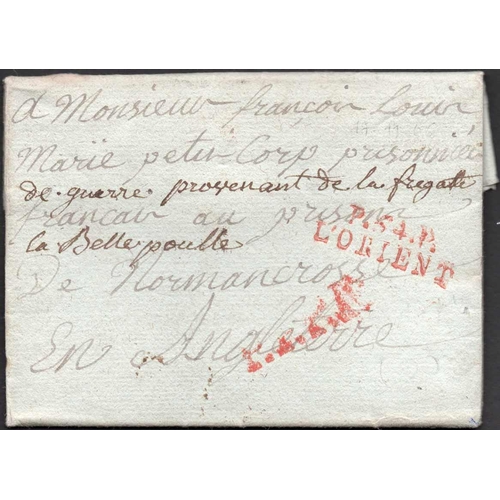 A Monsieur françois Louis
Marie petit-Corp prisonnier
de guerre provenant de la fregatte
francais au prison
la Belle poulle
P.54.P.
L'ORIENT
De Normancrosse
En Angleterre